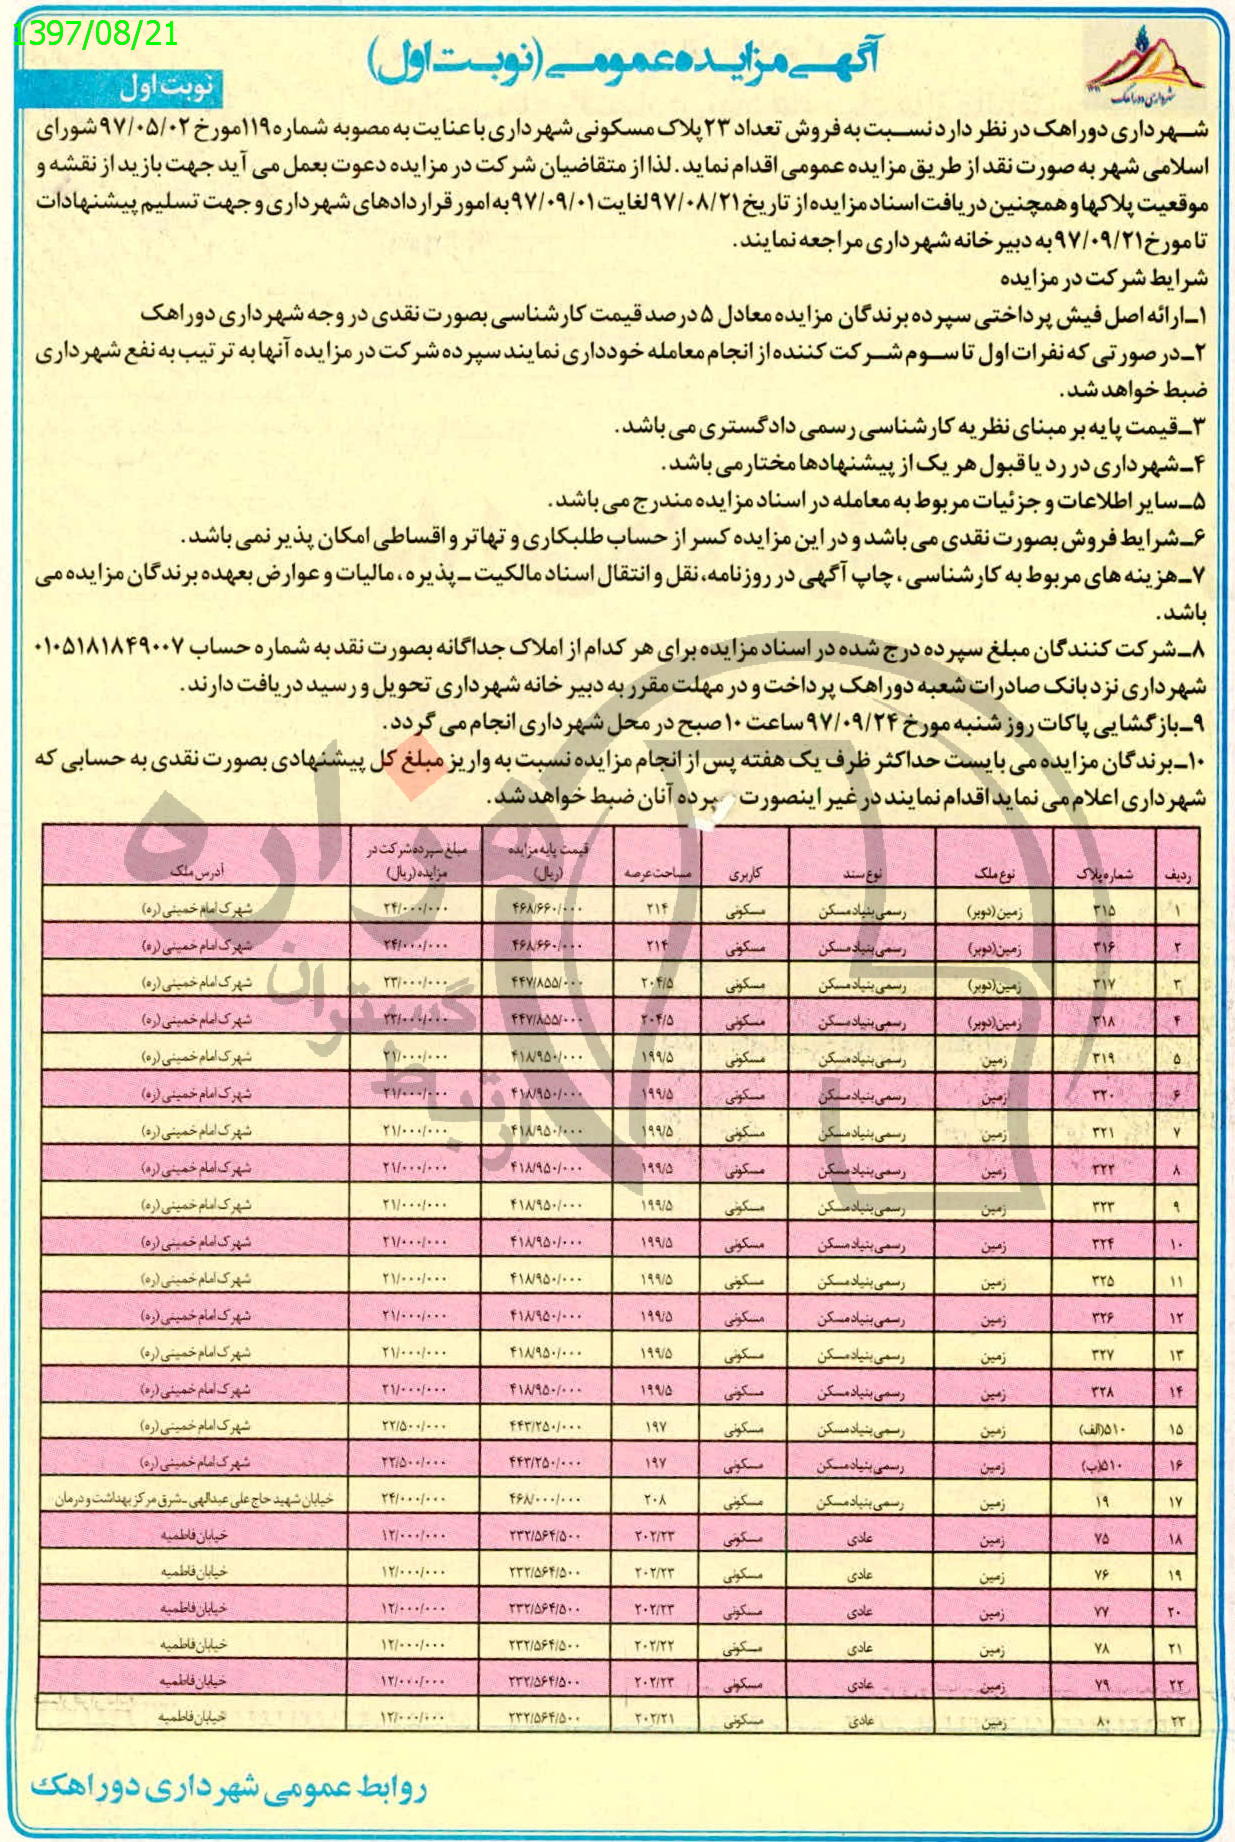 1397/08/21
آگهی مزایده عمومی (نوبت اول)
نوبت اول
شهرداری دوراهک
شهرداری دوراهک در نظر دارد نسبت به فروش تعداد ۲۳ پلاک مسکونی شهرداری با عنایت به مصوبه شماره ۱۱۹ مورخ ۹۷/۰۵/۰۲ شورای
اسلامی شهر به صورت نقد از طریق مزایده عمومی اقدام نماید. لذا از متقاضیان شرکت در مزایده دعوت بعمل می آید جهت بازدید از نقشه و
موقعیت پلاکها و همچنین دریافت اسناد مزایده از تاریخ ۹۷/۰۸/۲۱ لغایت ۹۷/۰۹/۰۱ به امور قراردادهای شهرداری و جهت تسلیم پیشنهادات
تا مورخ ۹۷/۰۹/۲۱ به دبیرخانه شهرداری مراجعه نمایند.
شرایط شرکت در مزایده
۱ـ ارائه اصل فیش پرداختی سپرده برندگان مزایده معادل ۵ درصد قیمت کارشناسی بصورت نقدی در وجه شهرداری دوراهک
۲ـ در صورتی که نفرات اول تا سوم شرکت کننده از انجام معامله خودداری نمایند سپرده شرکت در مزایده آنها به ترتیب به نفع شهرداری
ضبط خواهد شد.
۳ـ قیمت پایه بر مبنای نظریه کارشناسی رسمی دادگستری می باشد.
۴ـ شهرداری در رد یا قبول هر یک از پیشنهادها مختار می باشد.
۵ـ سایر اطلاعات و جزئیات مربوط به معامله در اسناد مزایده مندرج می باشد.
۶ـ شرایط فروش بصورت نقدی می باشد و در این مزایده کسر از حساب طلبکاری و تهاتر و اقساطی امکان پذیر نمی باشد.
۷ـ هزینه های مربوط به کارشناسی، چاپ آگهی در روزنامه، نقل و انتقال اسناد مالکیت ـ پذیره، مالیات و عوارض بعهده برندگان مزایده می
باشد.
۸ـ شرکت کنندگان مبلغ سپرده درج شده در اسناد مزایده برای هر کدام از املاک جداگانه بصورت نقد به شماره حساب ۰۱۰۵۱۸۱۸۴۹۰۰۷
شهرداری نزد بانک صادرات شعبه دوراهک پرداخت و در مهلت مقرر به دبیر خانه شهرداری تحویل و رسید دریافت دارند.
۹ـ بازگشایی پاکات روز شنبه مورخ ۹۷/۰۹/۲۴ ساعت ۱۰ صبح در محل شهرداری انجام می گردد.
۱۰ـ برندگان مزایده می بایست حداکثر ظرف یک هفته پس از انجام مزایده نسبت به واریز مبلغ کل پیشنهادی بصورت نقدی به حسابی که
شهرداری اعلام می نماید اقدام نمایند در غیر اینصورت سپرده آنان ضبط خواهد شد.
ردیف شماره پلاک نوع ملک نوع سند کاربری مساحت عرصه قیمت پایه مزایده (ریال) مبلغ سپرده شرکت در مزایده (ریال) آدرس ملک
۱ ۳۱۵ زمین (دوبر) رسمی بنیاد مسکن مسکونی ۲۱۴ ۴۶۸/۶۶۰/۰۰۰ ۲۴/۰۰۰/۰۰۰ شهرک امام خمینی (ره)
۲ ۳۱۶ زمین (دوبر) رسمی بنیاد مسکن مسکونی ۲۱۴ ۴۶۸/۶۶۰/۰۰۰ ۲۴/۰۰۰/۰۰۰ شهرک امام خمینی (ره)
۳ ۳۱۷ زمین (دوبر) رسمی بنیاد مسکن مسکونی ۲۰۴/۵ ۴۴۷/۸۵۵/۰۰۰ ۲۳/۰۰۰/۰۰۰ شهرک امام خمینی (ره)
۴ ۳۱۸ زمین (دوبر) رسمی بنیاد مسکن مسکونی ۲۰۴/۵ ۴۴۷/۸۵۵/۰۰۰ ۲۳/۰۰۰/۰۰۰ شهرک امام خمینی (ره)
۵ ۳۱۹ زمین رسمی بنیاد مسکن مسکونی ۱۹۹/۵ ۴۱۸/۹۵۰/۰۰۰ ۲۱/۰۰۰/۰۰۰ شهرک امام خمینی (ره)
۶ ۳۲۰ زمین رسمی بنیاد مسکن مسکونی ۱۹۹/۵ ۴۱۸/۹۵۰/۰۰۰ ۲۱/۰۰۰/۰۰۰ شهرک امام خمینی (ره)
۷ ۳۲۱ زمین رسمی بنیاد مسکن مسکونی ۱۹۹/۵ ۴۱۸/۹۵۰/۰۰۰ ۲۱/۰۰۰/۰۰۰ شهرک امام خمینی (ره)
۸ ۳۲۲ زمین رسمی بنیاد مسکن مسکونی ۱۹۹/۵ ۴۱۸/۹۵۰/۰۰۰ ۲۱/۰۰۰/۰۰۰ شهرک امام خمینی (ره)
۹ ۳۲۳ زمین رسمی بنیاد مسکن مسکونی ۱۹۹/۵ ۴۱۸/۹۵۰/۰۰۰ ۲۱/۰۰۰/۰۰۰ شهرک امام خمینی (ره)
۱۰ ۳۲۴ زمین رسمی بنیاد مسکن مسکونی ۱۹۹/۵ ۴۱۸/۹۵۰/۰۰۰ ۲۱/۰۰۰/۰۰۰ شهرک امام خمینی (ره)
۱۱ ۳۲۵ زمین رسمی بنیاد مسکن مسکونی ۱۹۹/۵ ۴۱۸/۹۵۰/۰۰۰ ۲۱/۰۰۰/۰۰۰ شهرک امام خمینی (ره)
۱۲ ۳۲۶ زمین رسمی بنیاد مسکن مسکونی ۱۹۹/۵ ۴۱۸/۹۵۰/۰۰۰ ۲۱/۰۰۰/۰۰۰ شهرک امام خمینی (ره)
۱۳ ۳۲۷ زمین رسمی بنیاد مسکن مسکونی ۱۹۹/۵ ۴۱۸/۹۵۰/۰۰۰ ۲۱/۰۰۰/۰۰۰ شهرک امام خمینی (ره)
۱۴ ۳۲۸ زمین رسمی بنیاد مسکن مسکونی ۱۹۹/۵ ۴۱۸/۹۵۰/۰۰۰ ۲۱/۰۰۰/۰۰۰ شهرک امام خمینی (ره)
۱۵ ۵۱۰(الف) زمین رسمی بنیاد مسکن مسکونی ۱۹۷ ۴۴۳/۲۵۰/۰۰۰ ۲۲/۵۰۰/۰۰۰ شهرک امام خمینی (ره)
۱۶ ۵۱۰(ب) زمین رسمی بنیاد مسکن مسکونی ۱۹۷ ۴۴۳/۲۵۰/۰۰۰ ۲۲/۵۰۰/۰۰۰ شهرک امام خمینی (ره)
۱۷ ۱۹ زمین رسمی بنیاد مسکن مسکونی ۲۰۸ ۴۶۸/۰۰۰/۰۰۰ ۲۴/۰۰۰/۰۰۰ خیابان شهید حاج علی عبدالهی ـ شرق مرکز بهداشت و درمان
۱۸ ۷۵ زمین عادی مسکونی ۲۰۲/۲۳ ۲۳۲/۵۶۴/۵۰۰ ۱۲/۰۰۰/۰۰۰ خیابان فاطمیه
۱۹ ۷۶ زمین عادی مسکونی ۲۰۲/۲۳ ۲۳۲/۵۶۴/۵۰۰ ۱۲/۰۰۰/۰۰۰ خیابان فاطمیه
۲۰ ۷۷ زمین عادی مسکونی ۲۰۲/۲۳ ۲۳۲/۵۶۴/۵۰۰ ۱۲/۰۰۰/۰۰۰ خیابان فاطمیه
۲۱ ۷۸ زمین عادی مسکونی ۲۰۲/۲۲ ۲۳۲/۵۶۴/۵۰۰ ۱۲/۰۰۰/۰۰۰ خیابان فاطمیه
۲۲ ۷۹ زمین عادی مسکونی ۲۰۲/۲۳ ۲۳۲/۵۶۴/۵۰۰ ۱۲/۰۰۰/۰۰۰ خیابان فاطمیه
۲۳ ۸۰ زمین عادی مسکونی ۲۰۲/۲۱ ۲۳۲/۵۶۴/۵۰۰ ۱۲/۰۰۰/۰۰۰ خیابان فاطمیه
هزاره
ارتباط گستران
روابط عمومی شهرداری دوراهک